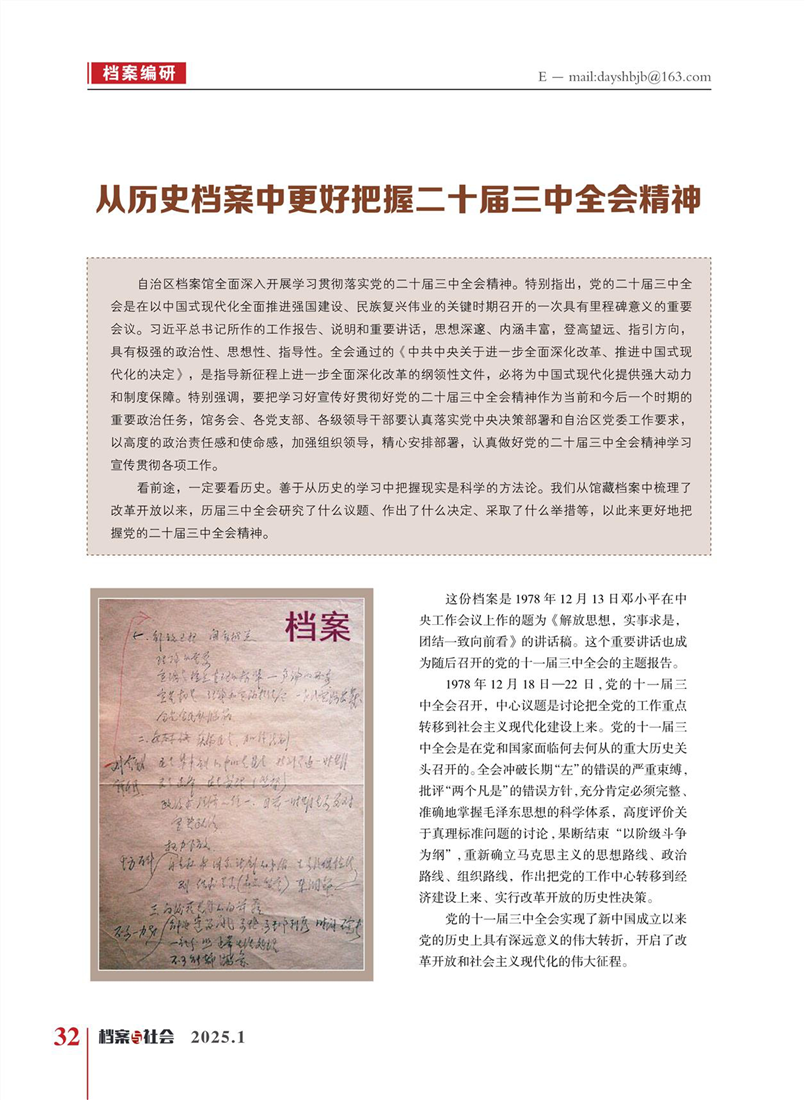 档案编研
E — mail:dayshbjb@163.com
从历史档案中更好把握二十届三中全会精神
自治区档案馆全面深入开展学习贯彻落实党的二十届三中全会精神。特别指出，党的二十届三中全
会是在以中国式现代化全面推进强国建设、民族复兴伟业的关键时期召开的一次具有里程碑意义的重要
会议。习近平总书记所作的工作报告、说明和重要讲话，思想深邃、内涵丰富，登高望远、指引方向，
具有极强的政治性、思想性、指导性。全会通过的《中共中央关于进一步全面深化改革、推进中国式现
代化的决定》，是指导新征程上进一步全面深化改革的纲领性文件，必将为中国式现代化提供强大动力
和制度保障。特别强调，要把学习好宣传好贯彻好党的二十届三中全会精神作为当前和今后一个时期的
重要政治任务，馆务会、各党支部、各级领导干部要认真落实党中央决策部署和自治区党委工作要求，
以高度的政治责任感和使命感，加强组织领导，精心安排部署，认真做好党的二十届三中全会精神学习
宣传贯彻各项工作。
看前途，一定要看历史。善于从历史的学习中把握现实是科学的方法论。我们从馆藏档案中梳理了
改革开放以来，历届三中全会研究了什么议题、作出了什么决定、采取了什么举措等，以此来更好地把
握党的二十届三中全会精神。
档案
这份档案是 1978 年 12 月 13 日邓小平在中
央工作会议上作的题为《解放思想，实事求是，
团结一致向前看》的讲话稿。这个重要讲话也成
为随后召开的党的十一届三中全会的主题报告。
1978 年 12 月 18 日—22 日，党的十一届三
中全会召开，中心议题是讨论把全党的工作重点
转移到社会主义现代化建设上来。党的十一届三
中全会是在党和国家面临何去何从的重大历史关
头召开的。全会冲破长期“左”的错误的严重束缚，
批评“两个凡是”的错误方针，充分肯定必须完整、
准确地掌握毛泽东思想的科学体系，高度评价关
于真理标准问题的讨论，果断结束“以阶级斗争
为纲”，重新确立马克思主义的思想路线、政治
路线、组织路线，作出把党的工作中心转移到经
济建设上来、实行改革开放的历史性决策。
党的十一届三中全会实现了新中国成立以来
党的历史上具有深远意义的伟大转折，开启了改
革开放和社会主义现代化的伟大征程。
32 档案与社会 2025.1